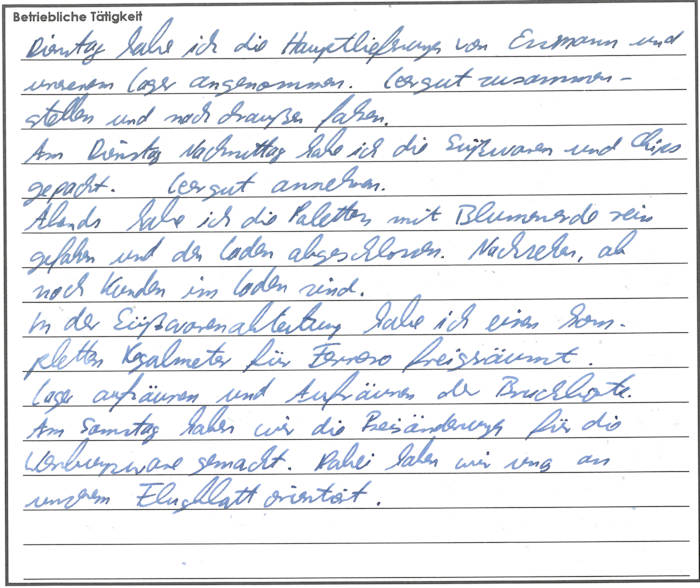 Betriebliche Tätigkeit
Dienstag habe ich die Hauptlieferung von und
unserem Lager angenommen. Leergut zusammen-
stellen und nach draußen fahren.
Am Dienstag Nachmittag habe ich die Süßwaren und Chips
gepackt. Leergut annehmen.
Abends habe ich die Paletten mit Blumenerde rein
gefahren und den Laden abgeschlossen. Nachsehen, ob
noch Kunden im Laden sind.
In der Süßwarenabteilung habe ich einen kom-
pletten Regalmeter für Ferrero freigeräumt.
Lager aufräumen und Aufräumen der Bruchkiste.
Am Samstag haben wir die Preisänderung für die
Werbungsware gemacht. Dabei haben wir uns an
unserem Flugblatt orientiert.